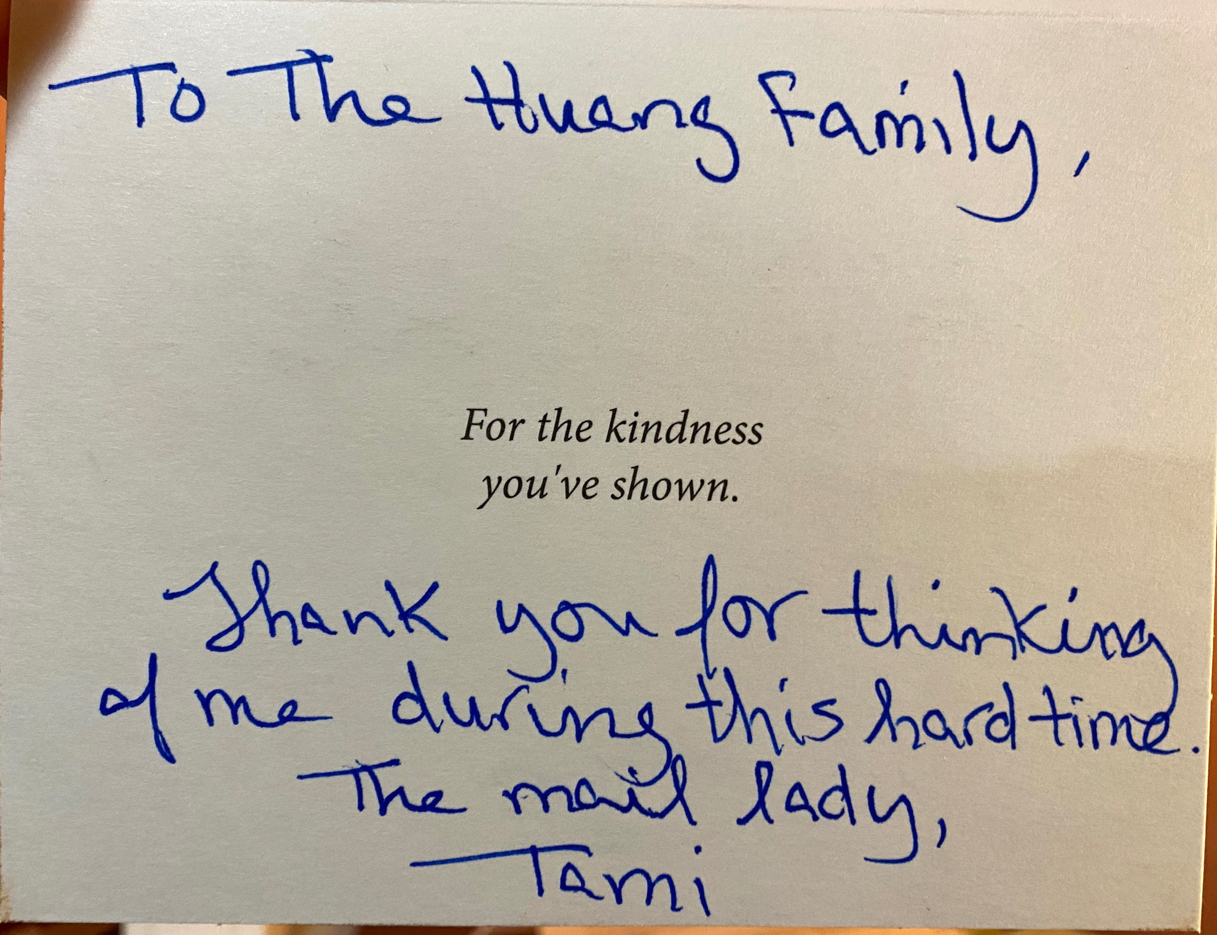 To The Huang Family,
For the kindness
you've shown.
Thank you for thinking
of me during this hard time.
The mail lady,
Tami